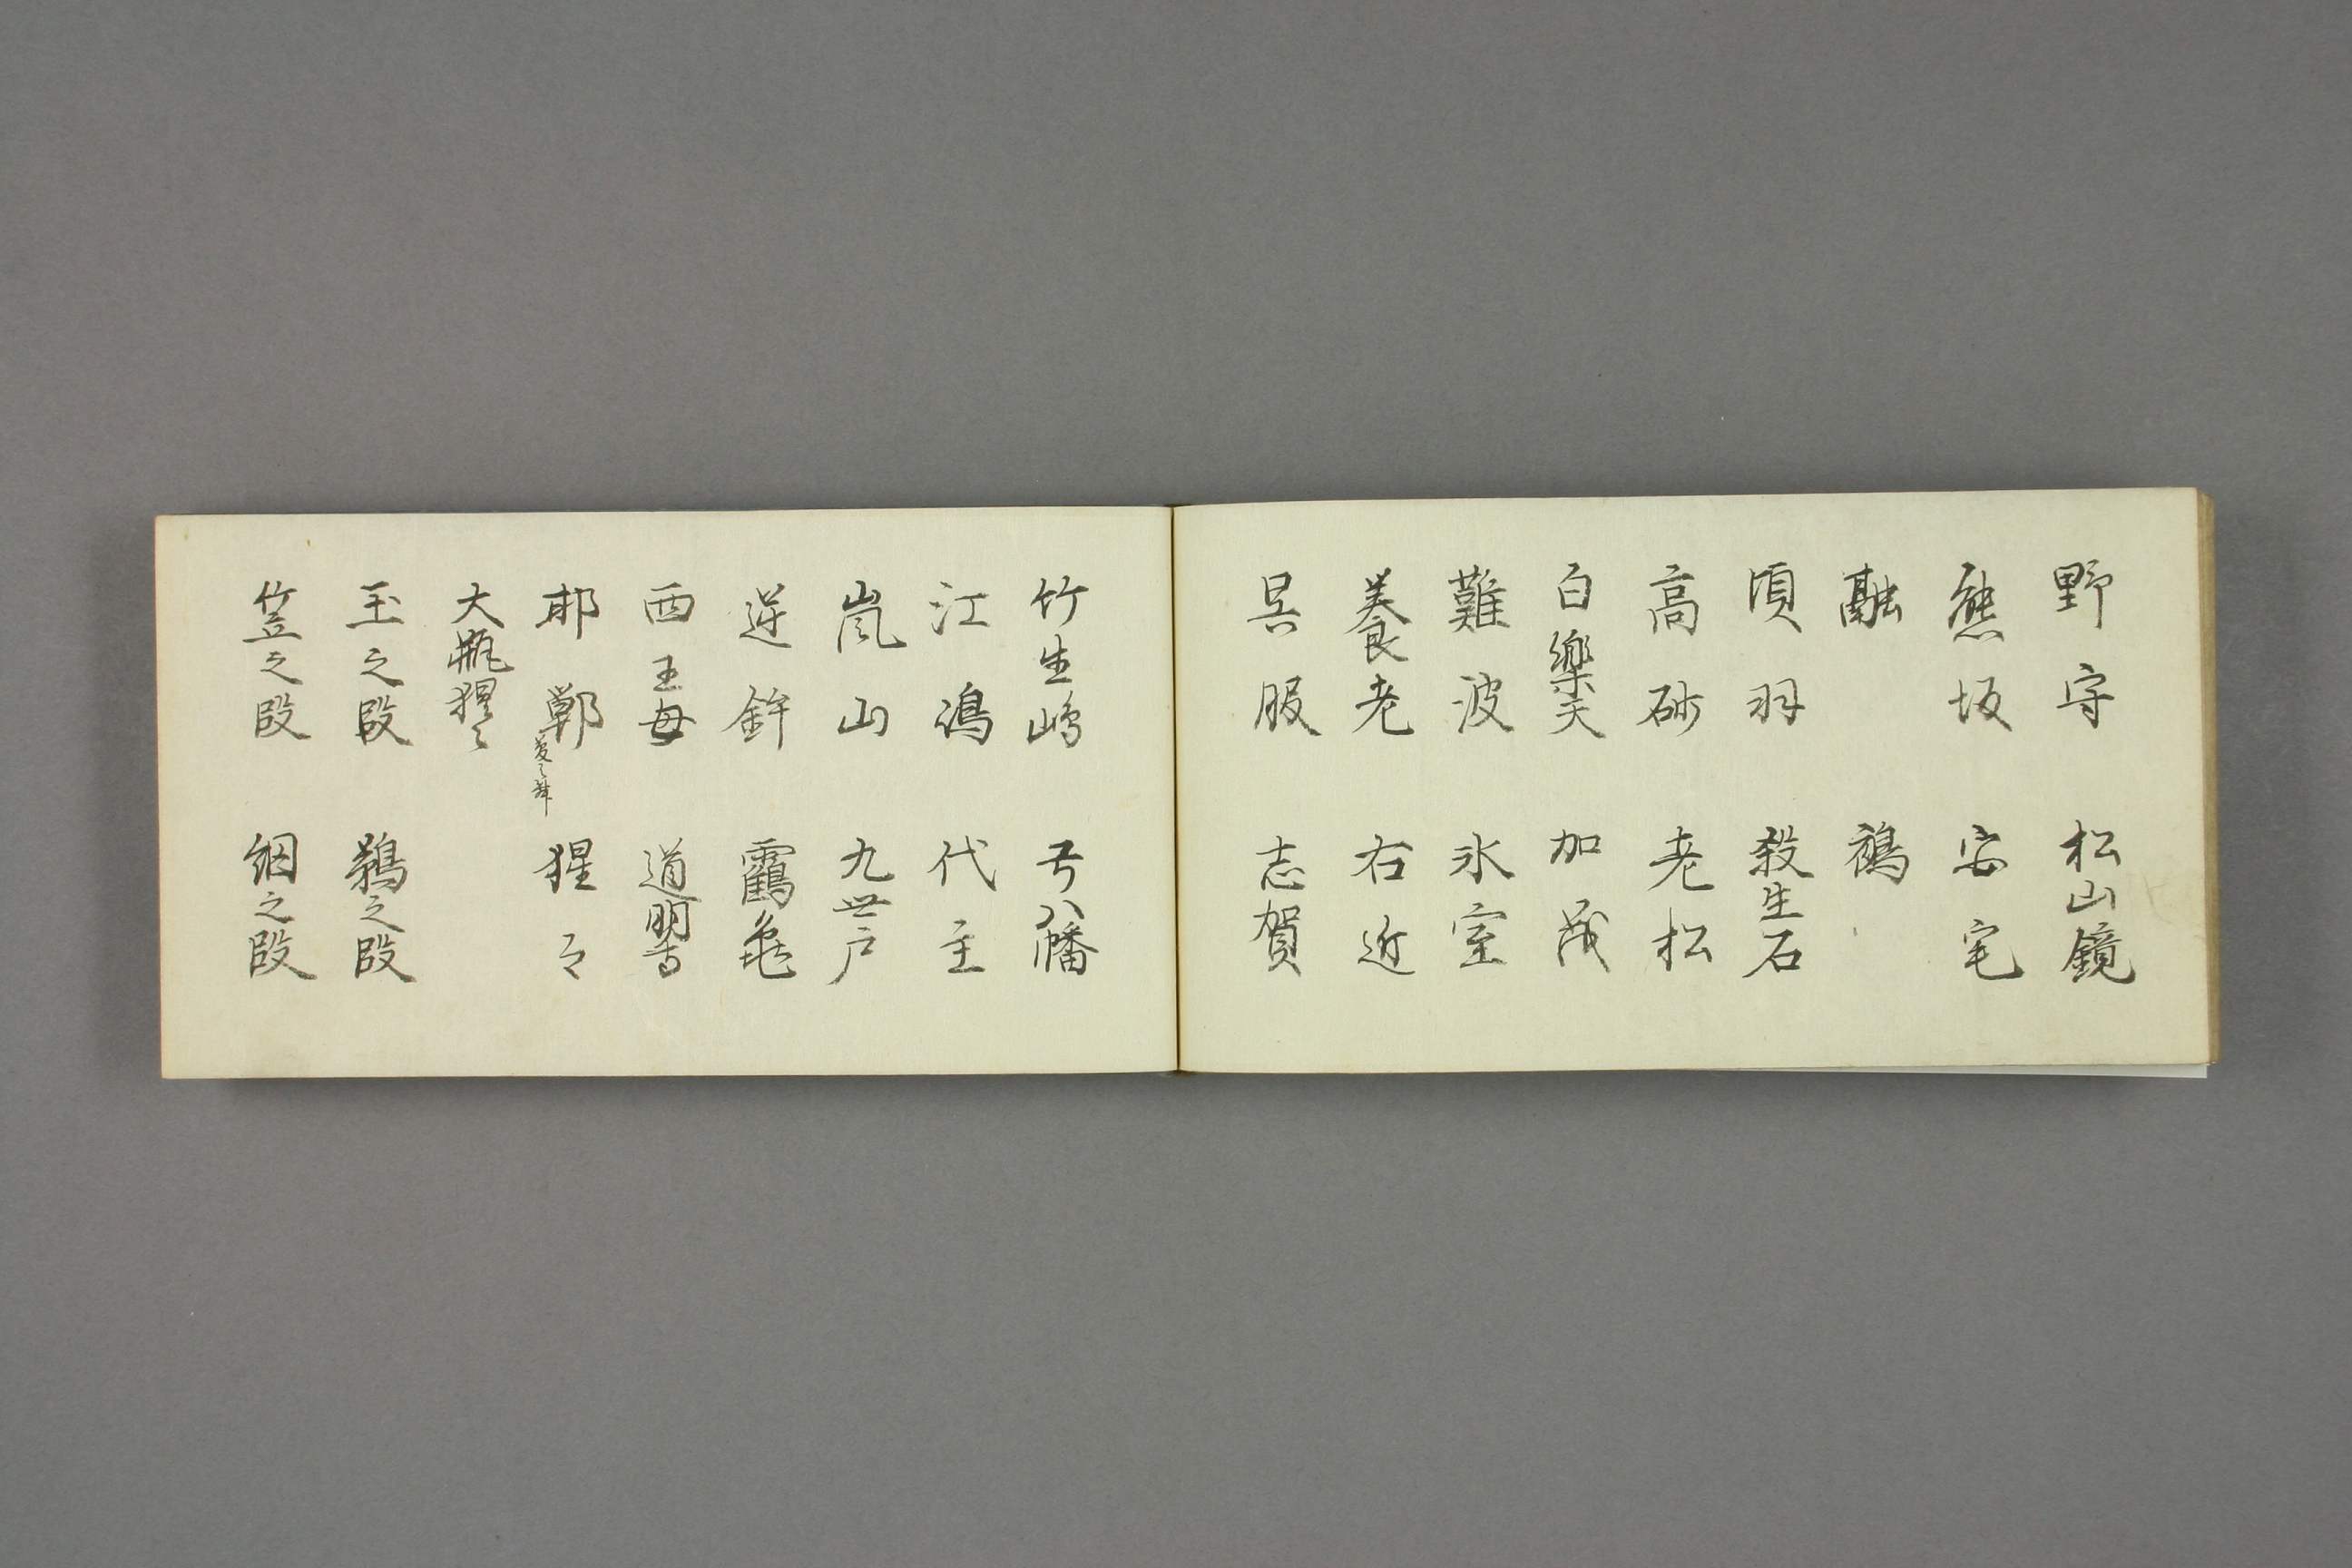 野守 松山鏡
熊坂 安宅
融 鵺
項羽 殺生石
高砂 老松
白樂天 加茂
難波 氷室
養老 右近
呉服 志賀
竹生嶋 弓八幡
江嶋 代主
嵐山 九世戸
逆鉾 靏亀
西王母 道明寺
邯鄲 猩々
大瓶猩々
玉之段 鵜之段
笠之段 綱之段